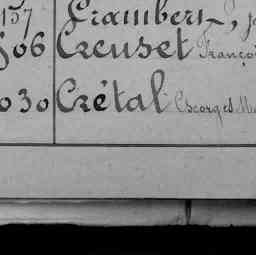 137 Crambert, J
506 Creuset Franço
030 Crétal Georges Ma